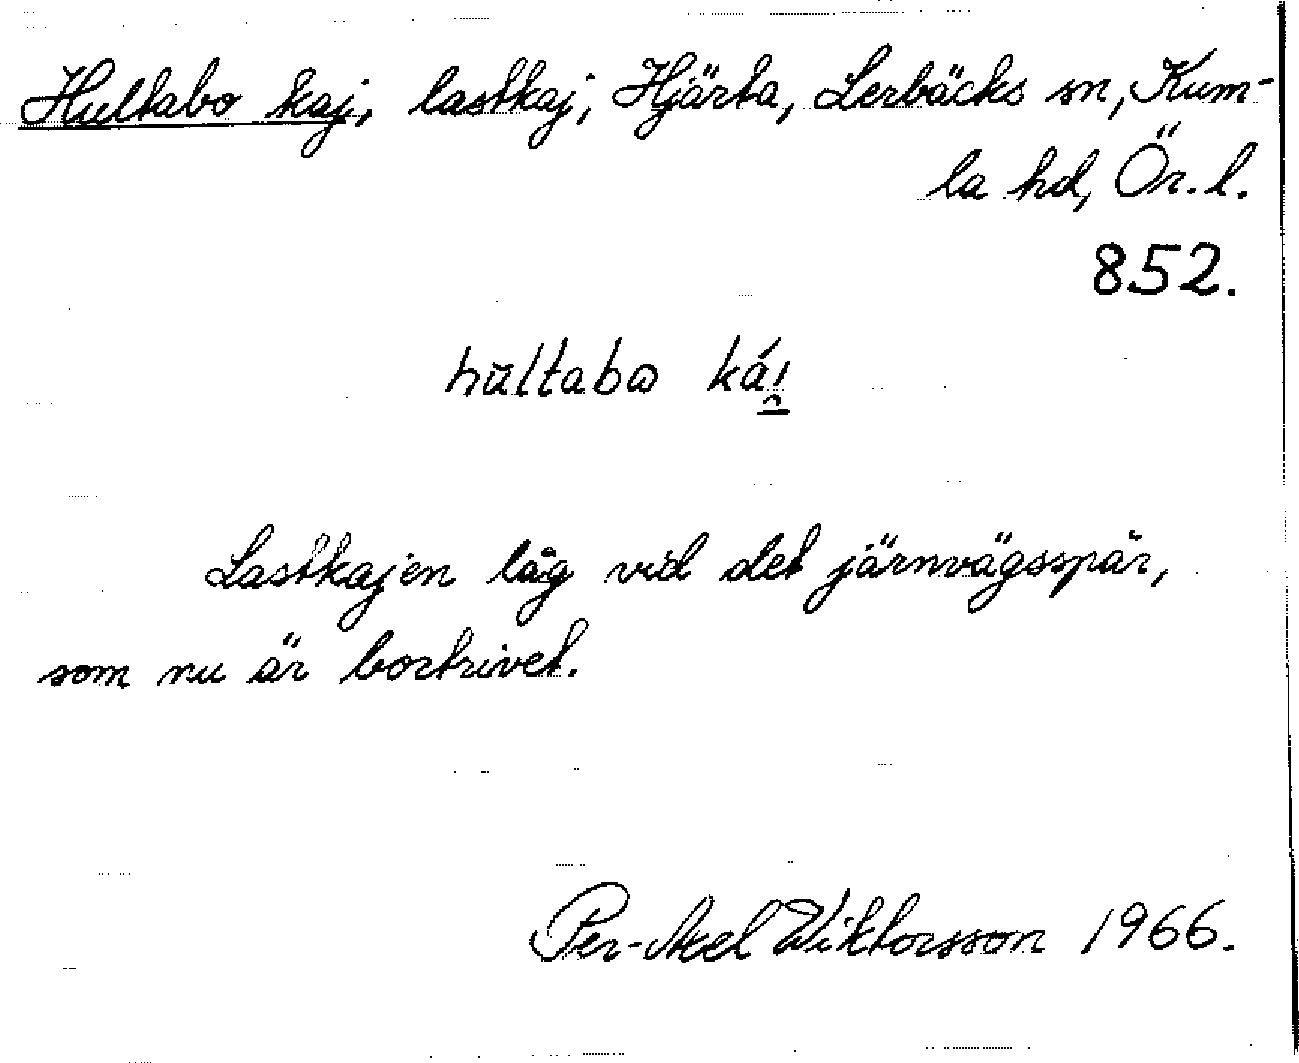 Hultabo kaj, lastkaj, Hjärta, Lerbäcks sn, Kum-
la hd, Ör. l.
852.
hultabω ká
Lastkajen låg vid det järnvägsspår,
som nu är bortrivet.
Per-Axel Wiktorsson 1966.